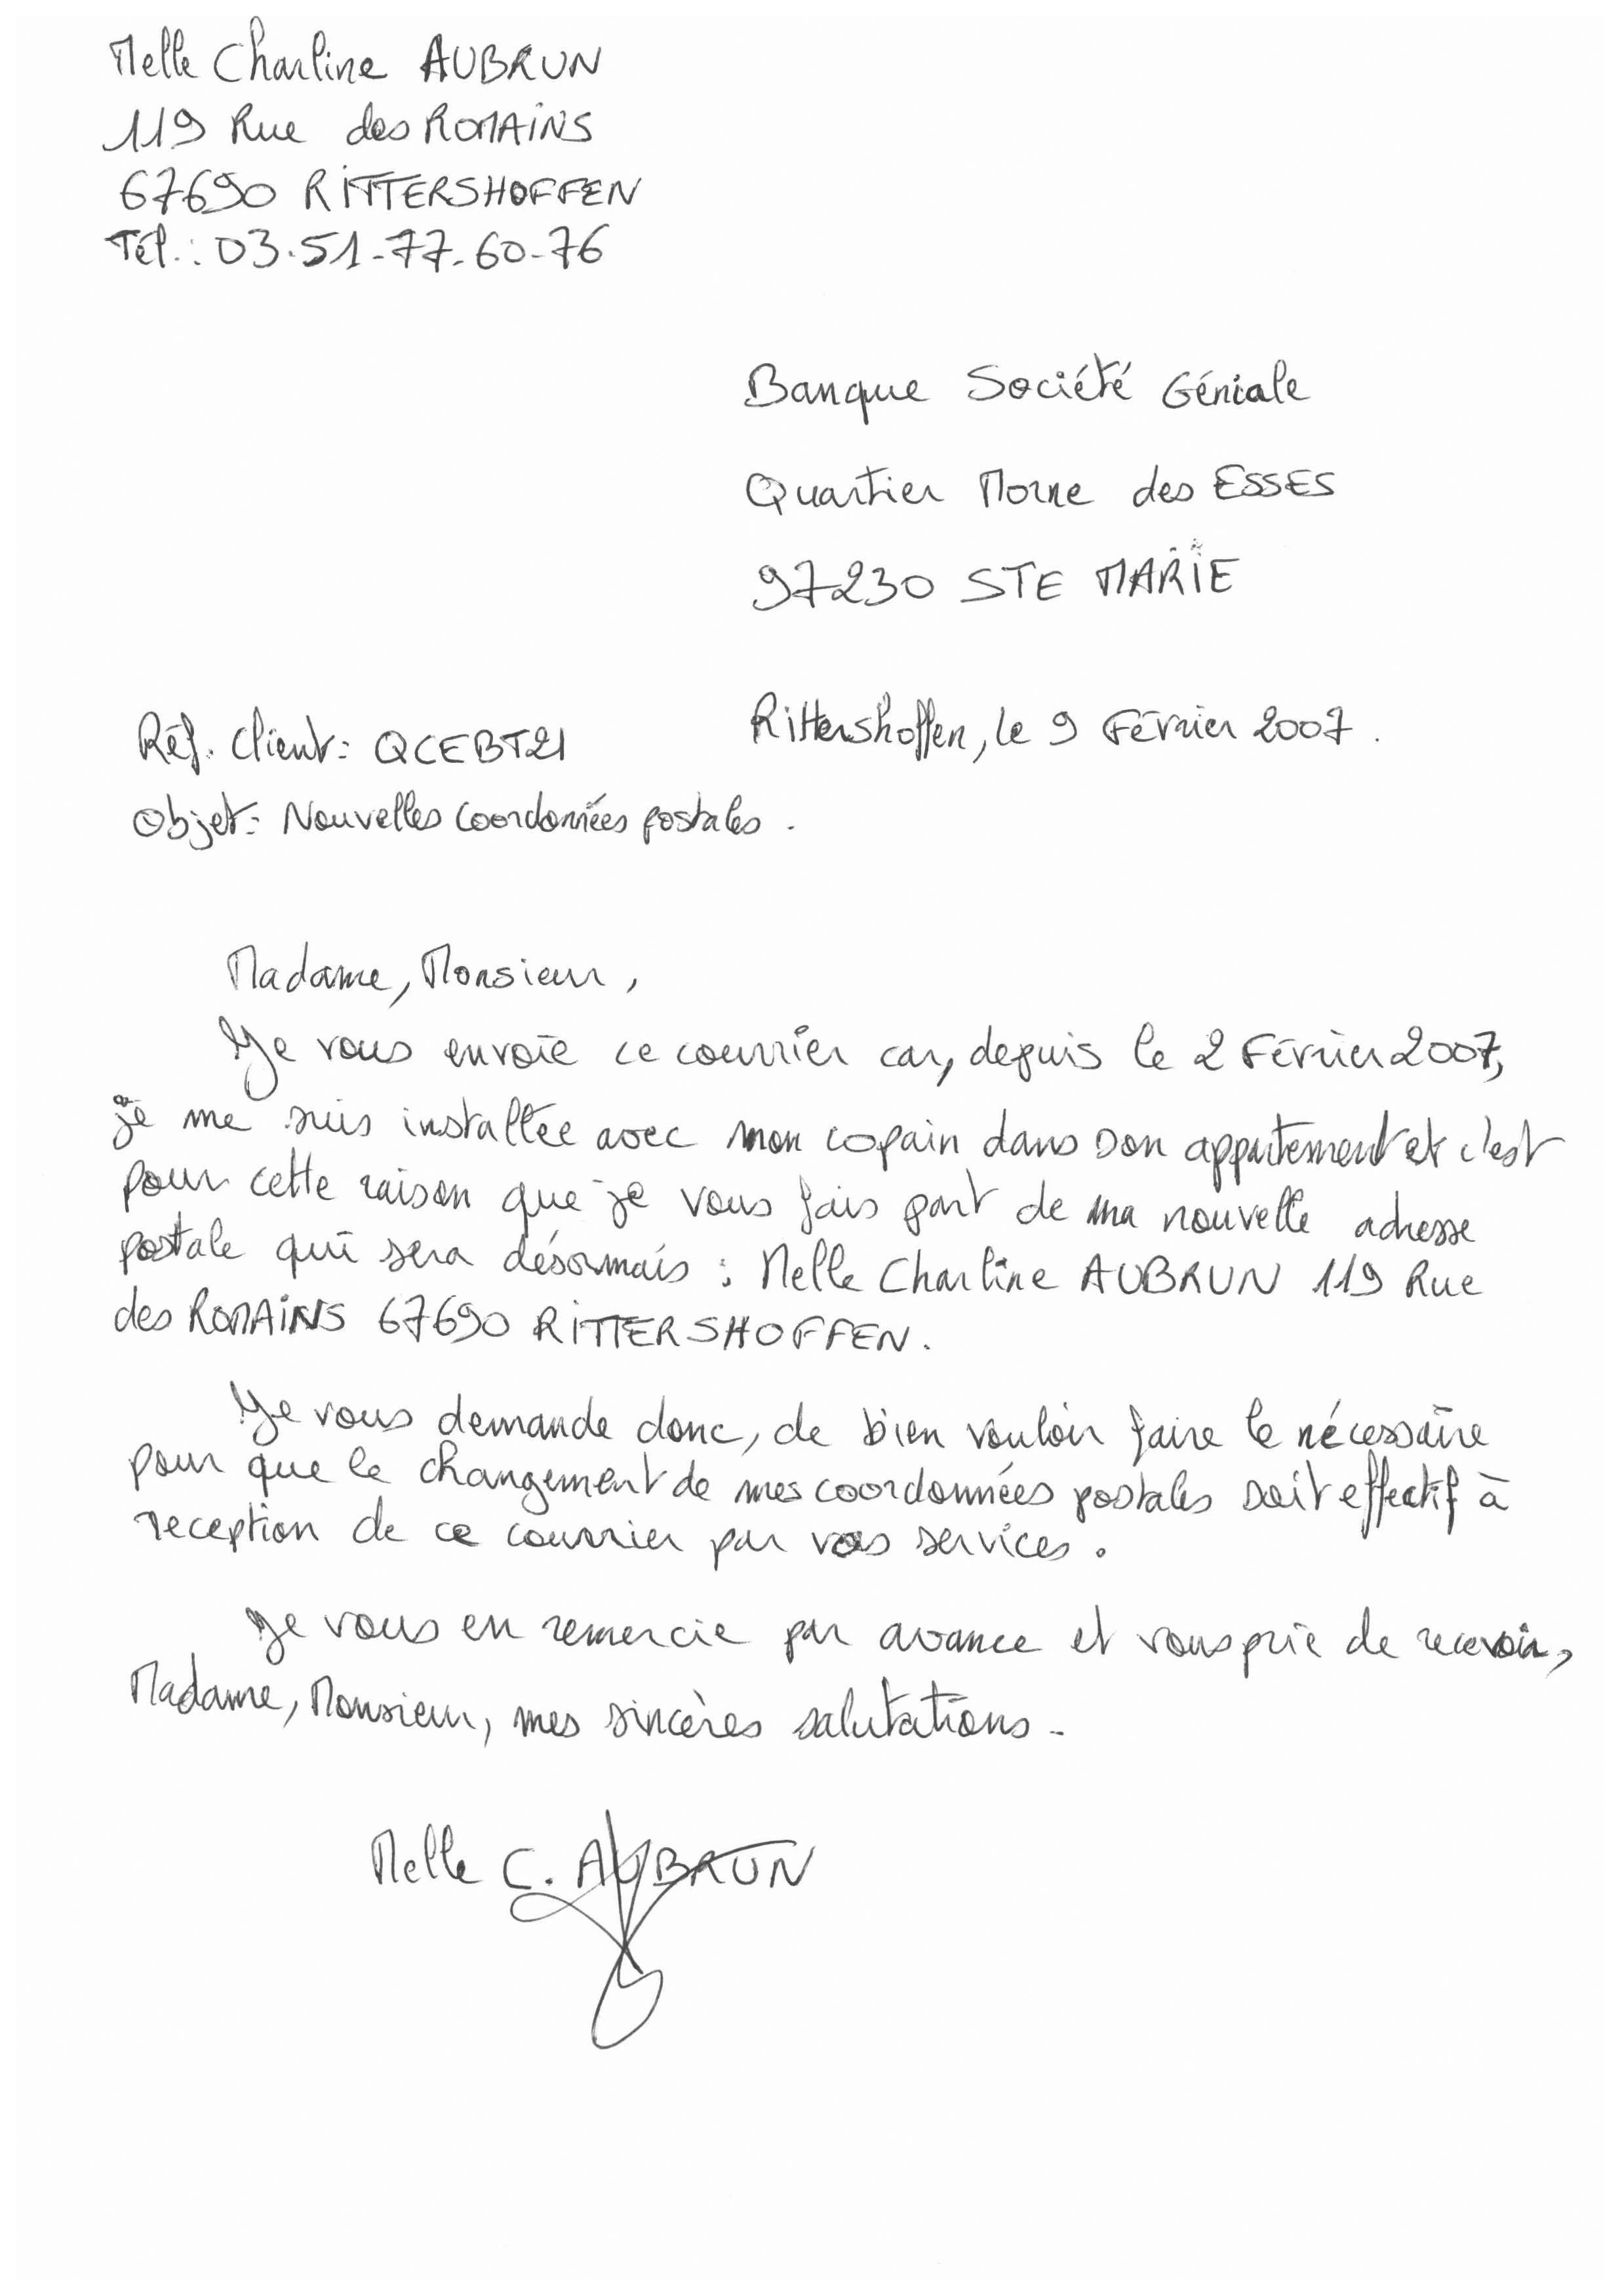 Melle Charline AUBRUN
119 Rue des ROMAINS
67690 RITTERSHOFFEN
Tél.: 03.51-77-60-76
Banque Société Géniale
Quartier Morne des ESSES
97230 STE MARIE
Rittershoffen, le 9 Février 2007.
Réf. Client: QCEBT21
Objet: Nouvelles Coordonnées postales.
Madame, Monsieur,
Je vous envoie ce courrier car, depuis le 2 Février 2007,
je me suis installée avec mon copain dans son appartement et c'est
pour cette raison que je vous fais part de ma nouvelle adresse
postale qui sera désormais : Melle Charline AUBRUN 119 Rue
des ROMAINS 67690 RITTERSHOFFEN.
Je vous demande donc, de bien vouloir faire le nécessaire
pour que le changement de mes coordonnées postales soit effectif à
reception de ce courrier par vos services.
Je vous en remercie par avance et vous prie de recevoir,
Madame, Monsieur, mes sincères salutations-
Melle C. AUBRUN